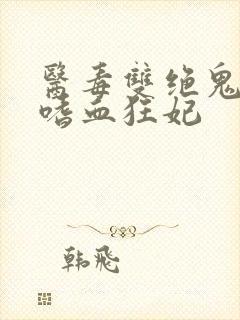 醫毒雙绝鬼
嗜血狂妃
韩飛